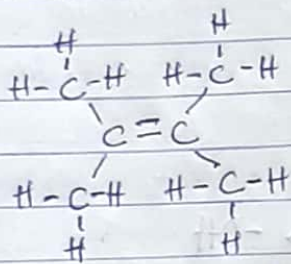 H H
H-C-H H-C-H
C=C
H-C-H H-C-H
H H